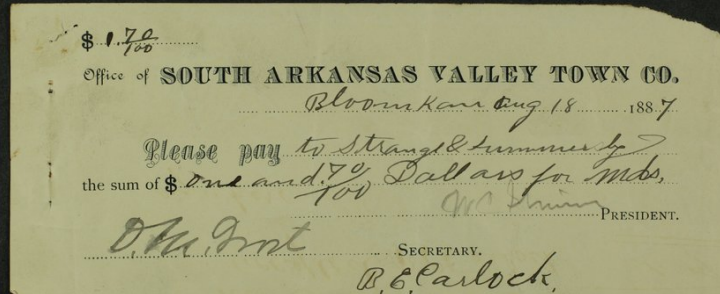 $ 1.70/100
Office of SOUTH ARKANSAS VALLEY TOWN CO.
Bloom Kan Aug 18 1887
Please pay to Strange & Summersby
the sum of $ One and 70/100 Dollars for Mds.
PRESIDENT.
D. M. Frost SECRETARY.
B. E. Carlock.